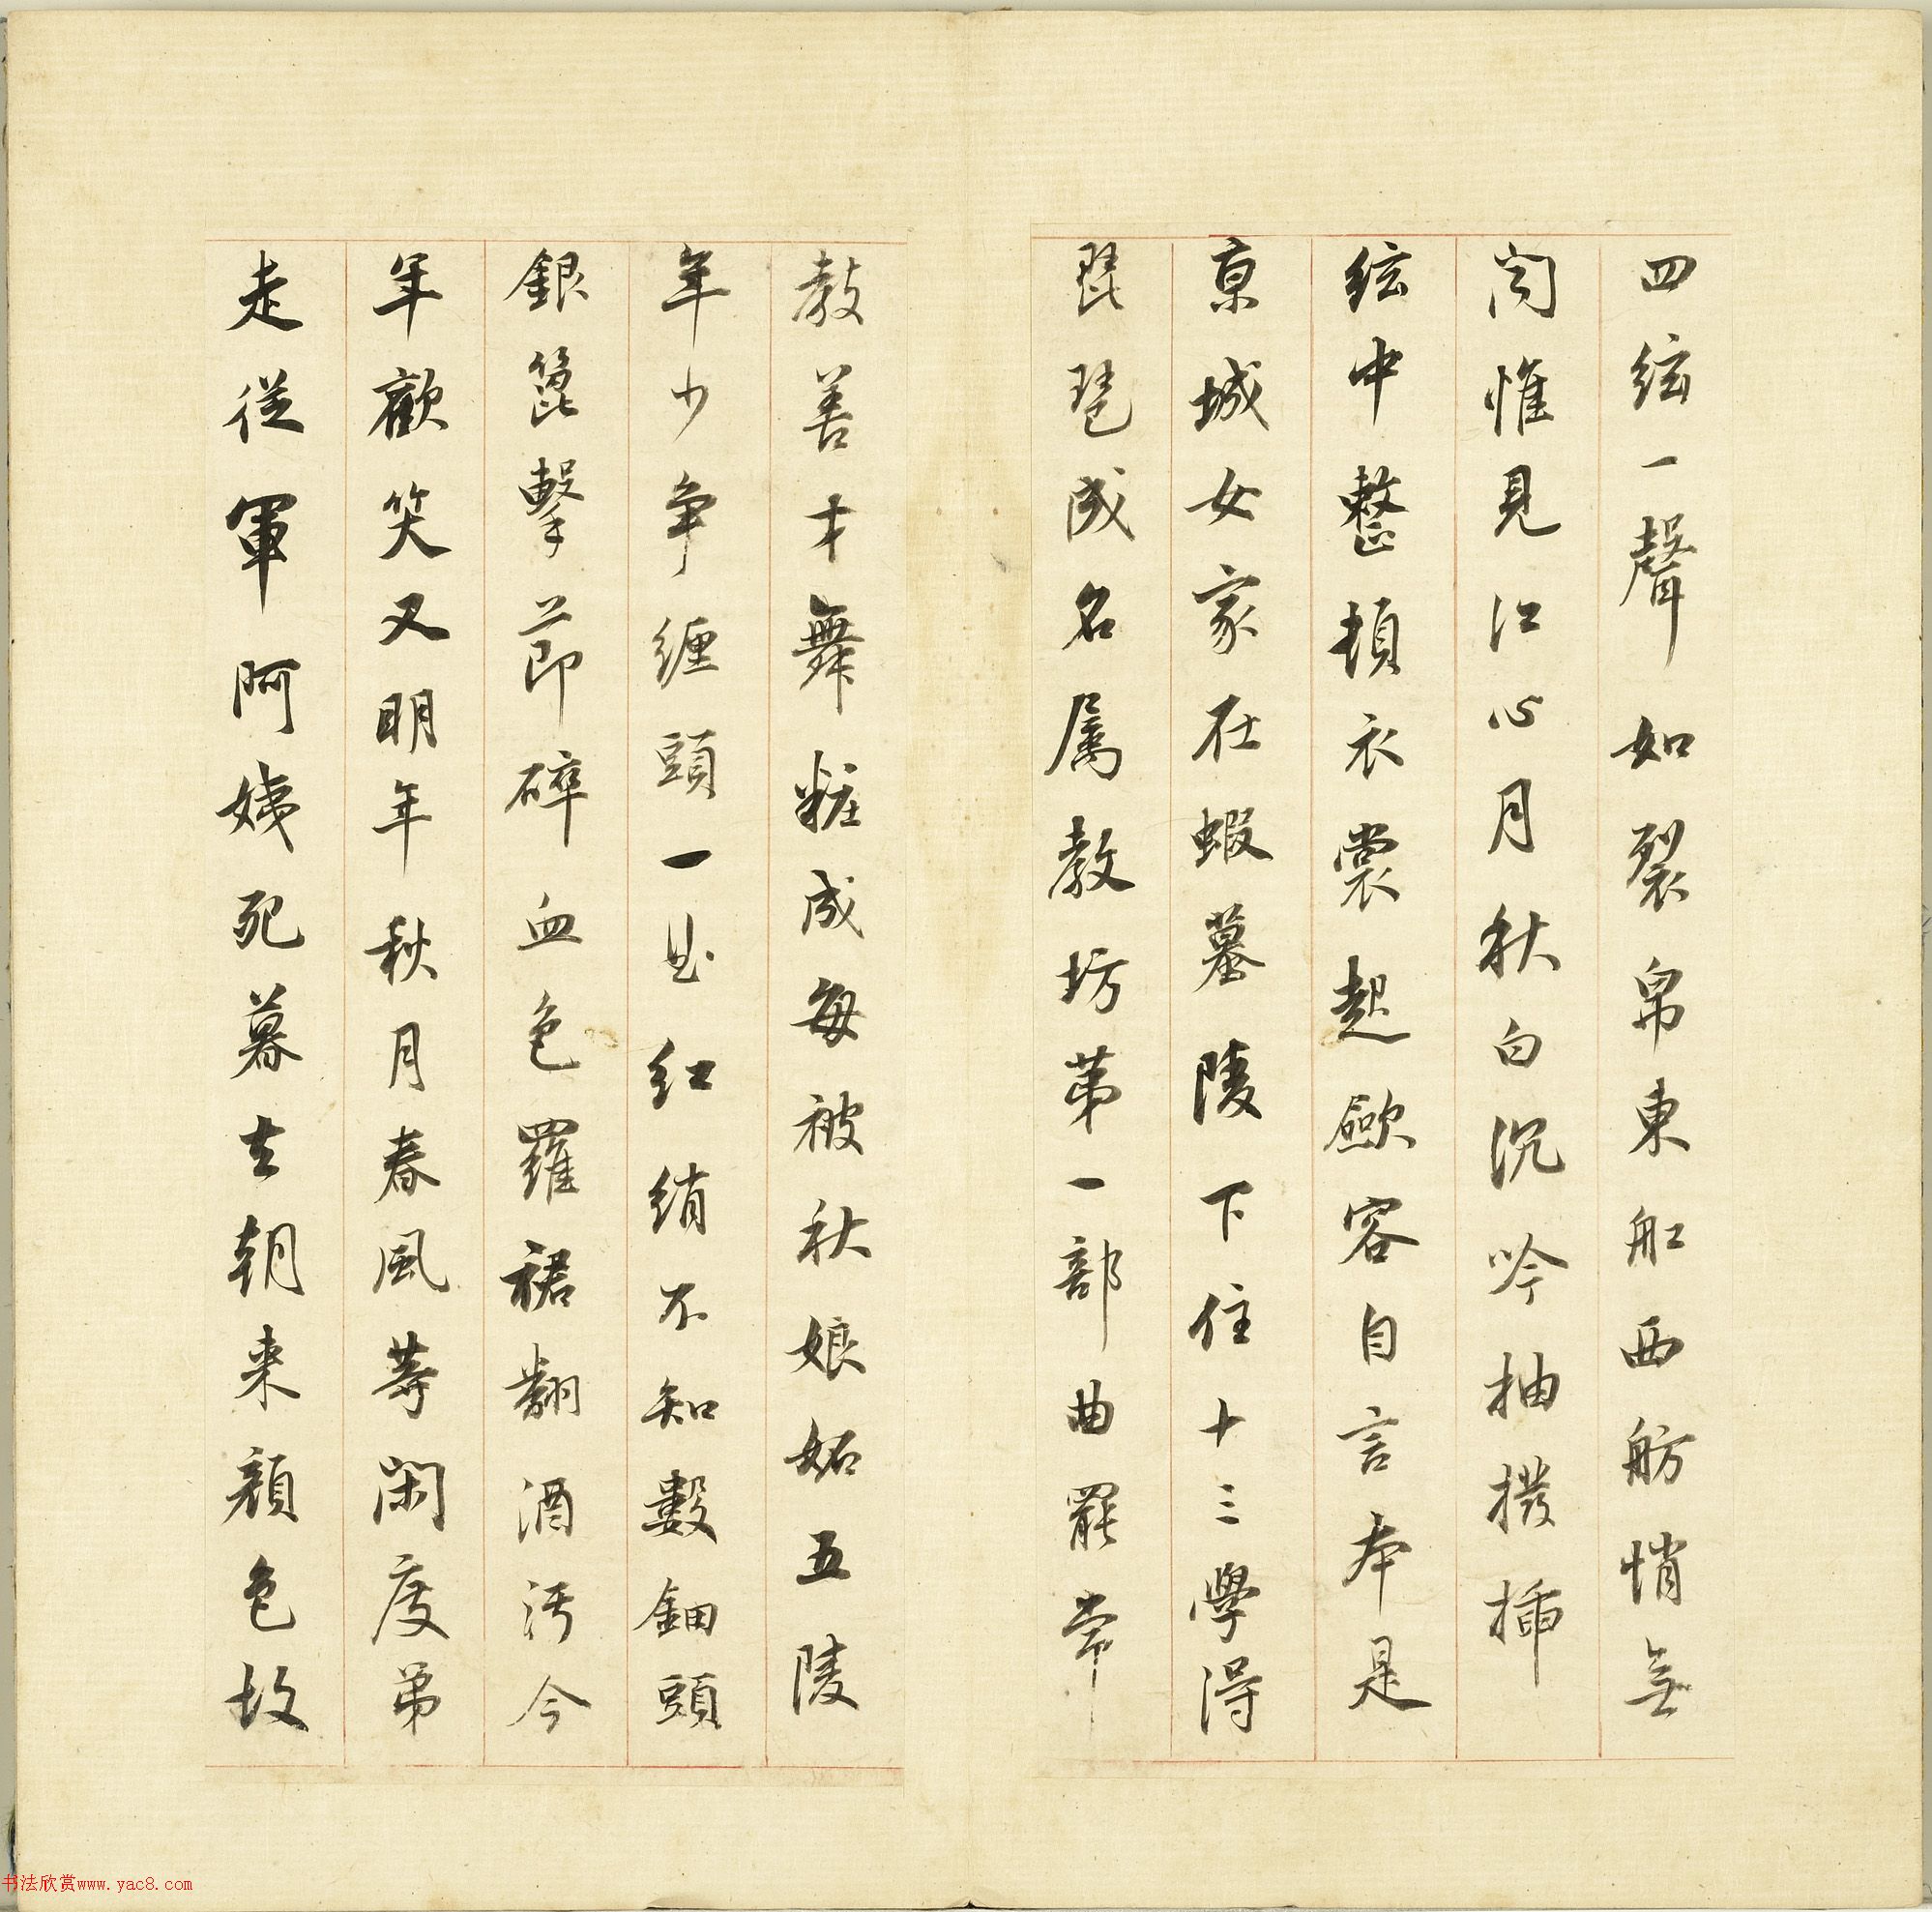 四絃一聲如裂帛東船西舫悄無
言惟見江心月秋白沉吟抽撥插
絃中整頓衣裳起歛容自言本是
京城女家在蝦蟇陵下住十三學得
琵琶成名属教坊第一部曲罷常
教善才舞粧成每被秋娘妬五陵
年少争纏頭一曲紅綃不知數鈿頭
銀篦擊節碎血色羅裙翻酒污今
年歡笑又明年秋月春風等閑度弟
走從軍阿姨死暮去朝来顔色故
书法欣赏www.yac8.com